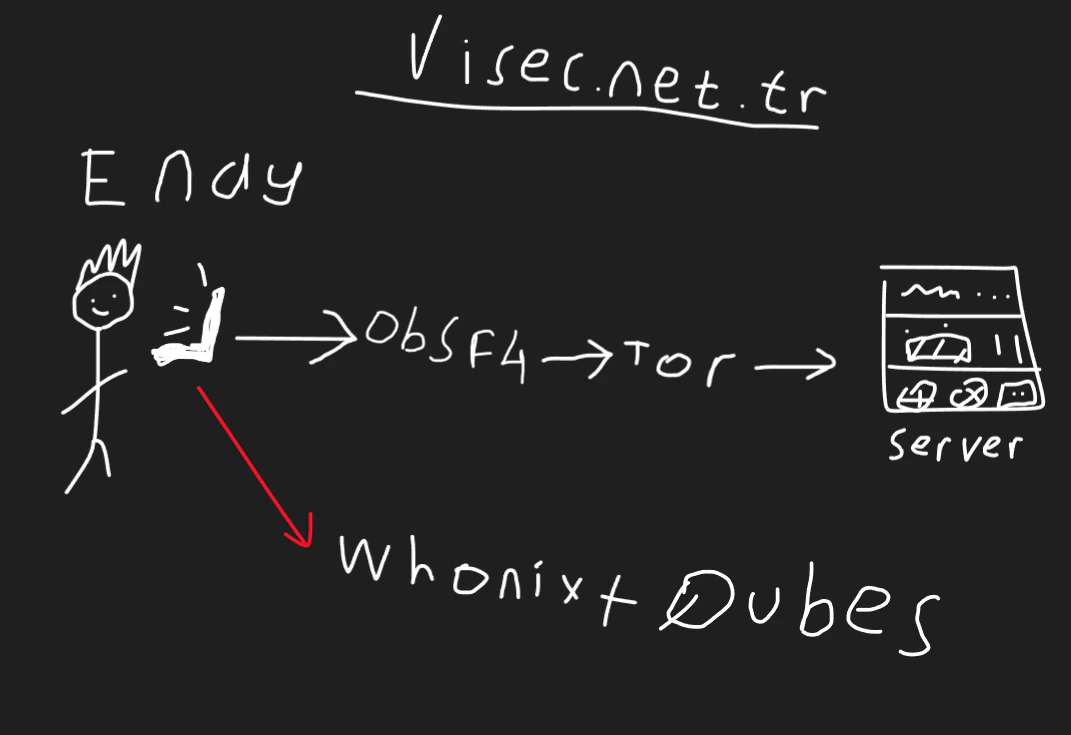 Visec.net.tr
Endy
ObSF4
Tor
Server
Whonix + Qubes